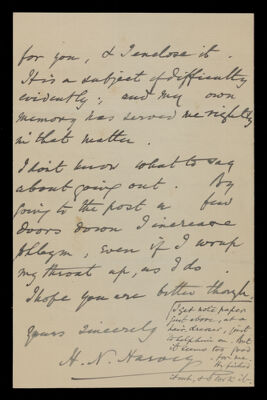 for you, & I enclose it.
It is a subject of difficulty
evidently; and my own
memory has served me rightly
in that matter.
I don't know what to say
about going out. By
going to the post a few
doors down I increase
phlegm, even if I wrap
my throat up, as I do.
I hope you are better though
Yours sincerely
H. N. Harvey
I get note paper
just above, at a
hair dresser, just
to help him on. But
it seems too good
for me.
He finds